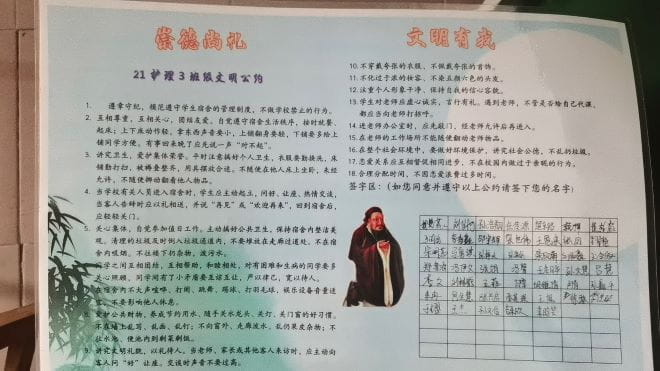 崇德尚礼
文明有我
21护理3班级文明公约
1. 遵章守纪，模范遵守学生宿舍的管理制度，不做学校禁止的行为。
2. 互相尊重，互相关心，团结友爱。自觉遵守宿舍生活秩序，按时就餐、
起床；上下床动作轻，拿东西声音要小，上铺翻身要轻，下铺要多给上
铺同学方便。有事回来晚了应先说一声“对不起”。
3. 讲究卫生，爱护集体荣誉。平时注意搞好个人卫生，衣服要勤换洗，床
铺勤打扫，被褥叠整齐，用具摆放合适。不随便在他人床上坐卧，未经
允许，不随便挪动翻看他人物品。
4. 当学校有关人员进入宿舍时，学生应主动起立，问好、让座、热情交谈，
当客人告辞时应以礼相送，并说“再见”或“欢迎再来”，回到宿舍后，
应轻轻关门。
5. 关心集体，自觉参加值日工作。主动搞好公共卫生，保持宿舍内整洁美
观。清理的垃圾及时倒入垃圾通道内，不要堆放在走廊过道处，不在宿
舍内吸烟。不往楼下扔杂物，泼污水。
6. 同学之间互相团结，互相帮助，和睦相处，对有困难和生病的同学要多
关心照顾，同学间有了小矛盾要互谅互让，严以律己，宽以待人。
7. 在宿舍内不大声喧哗、打闹、跳舞、踢球、打羽毛球，娱乐设备音量适
宜，不要影响他人休息。
8. 爱护公共财物，养成节约用水，随手关水龙头、关灯、关门窗的好习惯。
不在墙上乱写，乱画，乱行；不向窗外、走廊泼水，乱仍果皮杂物；不
往水池、便池内倒剩菜剩饭。
9. 讲究文明礼貌，以礼待人，当老师、家长或其他客人来访时，应主动向
客人问“好”让座。交谈时声音不要过高。
10.不穿戴夸张的衣服、不佩戴夸张的首饰。
11.不化过于浓的妆容、不染五颜六色的头发。
12.注重个人形象干净，保持自我的信心容貌。
13.学生对老师应虚心诚实，言行有礼。遇到老师，不管是否给自己代课，
都应当向老师打招呼。
14.进老师办公室时，应先敲门，经老师允许后再进入。
15.在老师的工作场所不能随便翻动老师物品。
16.在整个社会环境中，要做好环境保护，讲究社会公德，不乱扔垃圾。
17.恋爱关系应互相督促相同进步，不在校园内做过于亲昵的行为。
18.合理分配时间，不因恋爱浪费过多时间。
签字区：(如您同意并遵守以上公约请签下您的名字)